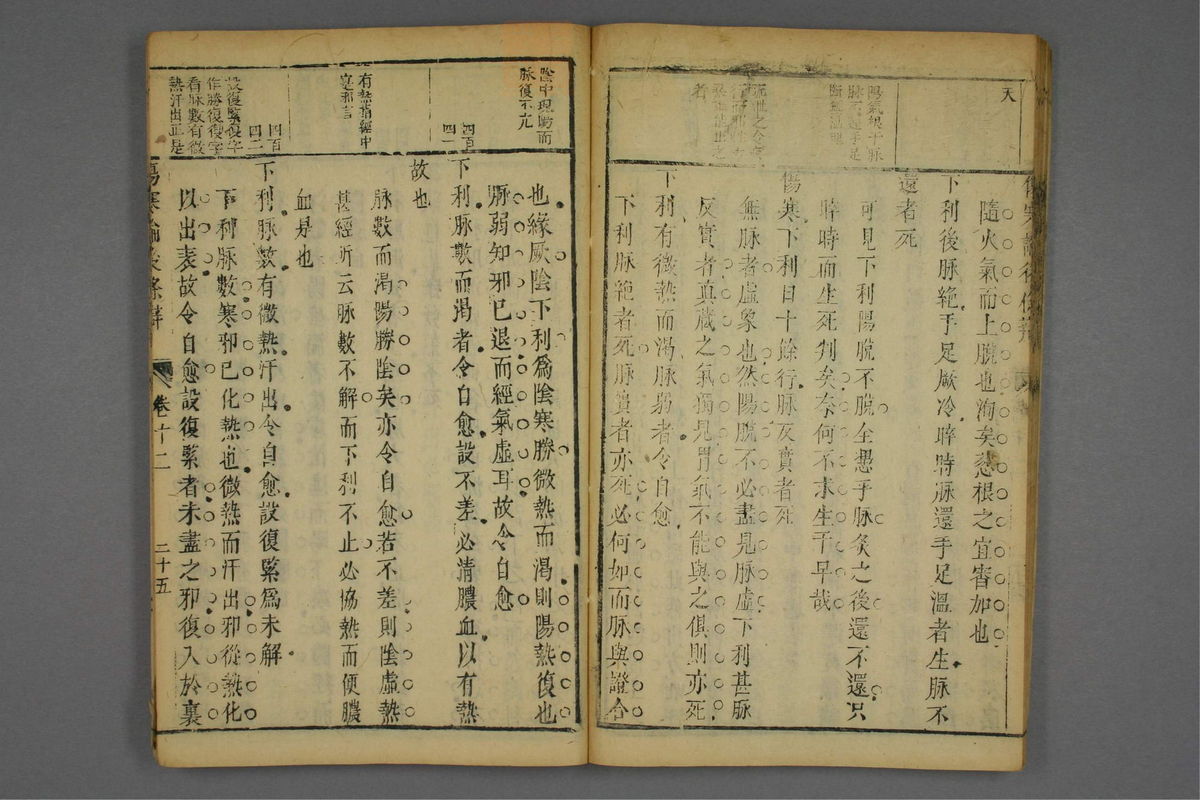 天
陽氣絕于脉
脉不還手足
者
隨火氣而上脫也洵矣慭根之宜審加也
下利後脉絶手足厥冷晬時脉還手足溫者生脉不
還者死
可見下利陽脫不脫全慿乎脉灸之後還不還只
晬時而生死判矣奈何不求生于早哉
傷寒下利日十餘行脉反實者死
無脉者虛象也然陽脫不必盡見脉虛下利甚脉
反實者真藏之氣獨見胃氣不能與之俱則亦死
下利有微熱而渴脉弱者令自愈
下利脉絶者死脉實者亦死必何如而脉與證合
陰中現陽而
脉復不亢
四百
四一
有熱指經中
寔邪言
四百
四二
設復緊復字
作勝復復字
看脉數有微
熱汗出正是
也緣厥陰下利爲陰寒勝微熱而渴則陽熱復也
脉弱知邪已退而經氣虛耳故令自愈
下利脉數而渴者令自愈設不差必清膿血以有熱
故也
脉數而渴陽勝陰矣亦令自愈若不差則陰虛熱
甚經所云脉數不解而下利不止必協熱而便膿
血是也
下利脉數有微熱汗出令自愈設復緊爲未解
下利脉數寒邪已化熱也微熱而汗出邪從熱化
以出表故令自愈設復緊者未盡之邪復入於裏
傷寒論後條辨
卷之十二
二十五